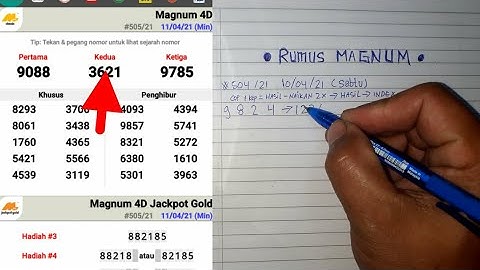 Magnum 4D
#505/21 11/04/21 (Min)
Tip: Tekan & pegang nomor untuk lihat sejarah nomor
Pertama Kedua Ketiga
9088 3621 9785
Khusus Penghibur
8293 3706 4093 4394
8061 3438 9857 5741
1760 4365 8321 5272
5421 5566 6380 1610
4539 3119 5301 3963
Magnum 4D Jackpot Gold
#505/21 11/04/21 (Min)
Hadiah #3 882185
Hadiah #4 88218 atau 82185
• RUMUS MAGNUM •
#504/21 10/04/21 (Sabtu)
COP + KEP = HASIL - NAIKAN 2X → HASIL → INDEX
9 8 2 4 → 12